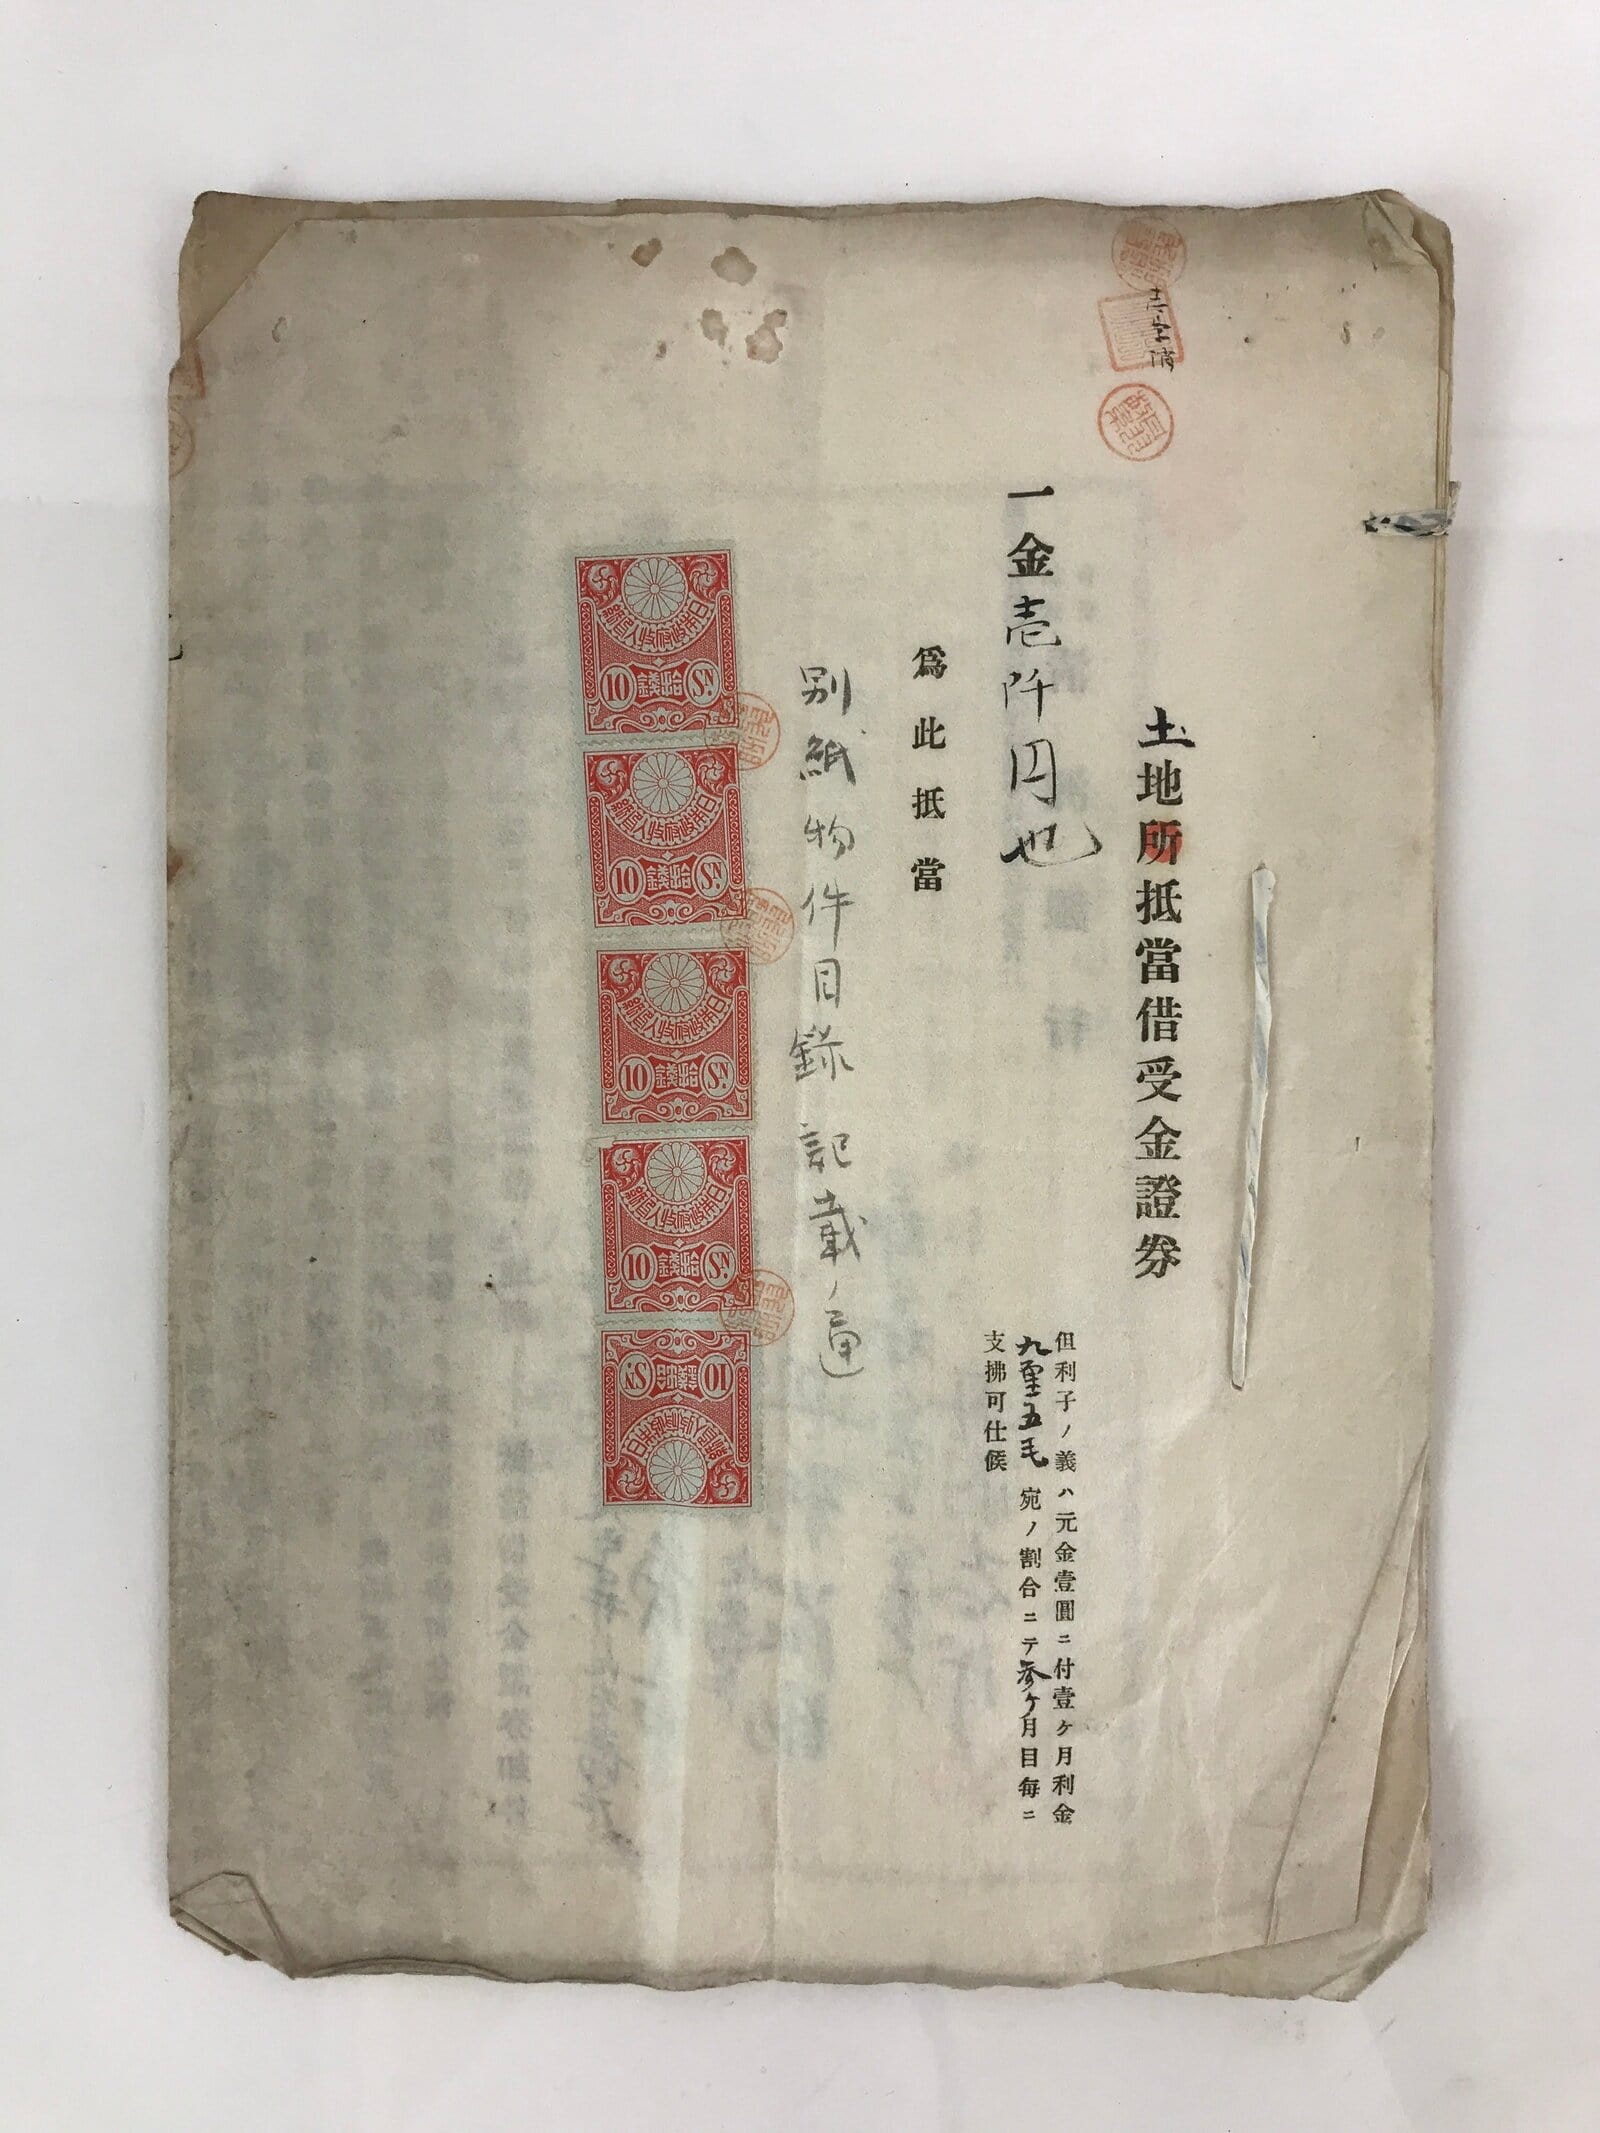 壱字消
土地所抵當借受金證券
一金壱阡円也
但利子ノ義ハ元金壹圓ニ付壹ヶ月利金
九厘五毛宛ノ割合ニテ参ヶ月目毎ニ
支拂可仕候
爲此抵當
別紙物件目録記載ノ通
日本政府収入印紙
10 拾錢 Sɴ.
日本政府収入印紙
10 拾錢 Sɴ.
日本政府収入印紙
10 拾錢 Sɴ.
日本政府収入印紙
10 拾錢 Sɴ.
日本政府収入印紙
10 拾錢 Sɴ.